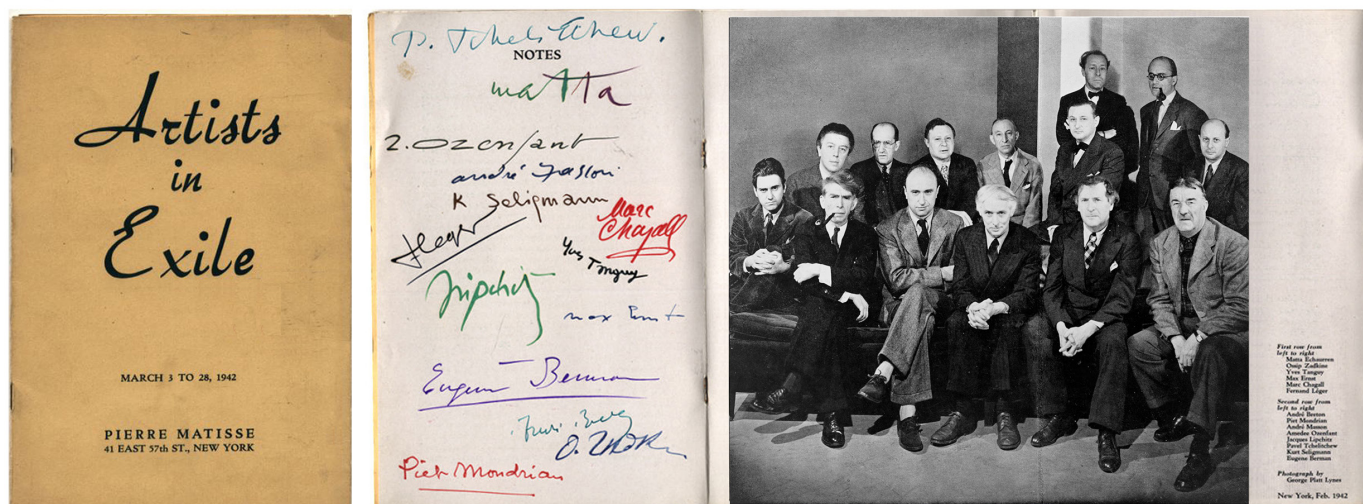 Artists
in
Exile
MARCH 3 TO 28, 1942
PIERRE MATISSE
41 EAST 57th ST., NEW YORK
P. Tchelitchew.
NOTES
matta
Ozenfant
andré Masson
K Seligmann
Marc
Chagall
FLeger
Yves Tanguy
Lipchitz
max Ernst
Eugene Berman
O. Zadkine
Piet Mondrian
First row from
left to right
Matta Echaurren
Ossip Zadkine
Yves Tanguy
Max Ernst
Marc Chagall
Fernand Léger
Second row from
left to right
André Breton
Piet Mondrian
André Masson
Amedee Ozenfant
Jacques Lipchitz
Pavel Tchelitchew
Kurt Seligmann
Eugene Berman
Photograph by
George Platt Lynes
New York, Feb. 1942